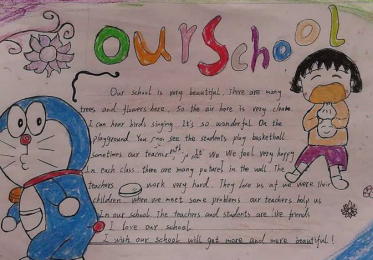 OUR SChool
Our school is very beautiful. There are many
trees and flowers here, So the air here is very clean.
I can hear birds singing. It's so wonderful. On the
playground. You can see the students play basketball.
Sometimes our teacher with us. We feel very happy
In each class. there are many pictures in the wall. The
teachers work very hard. They love us as we were their
children. when we meet some problems our teachers help us
In our school. The teachers and students are like friends
I love our school.
I wish our school will get more and more beautiful!